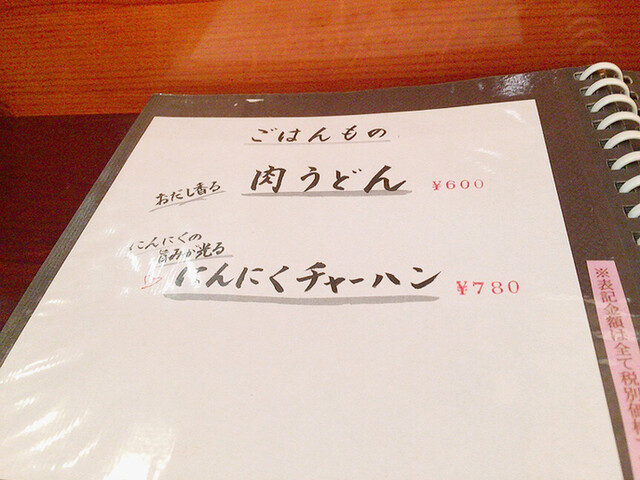 ごはんもの
おだし香る
肉うどん ¥600
にんにくの
旨みが光る
にんにくチャーハン ¥780
※表記金額は全て税別価格